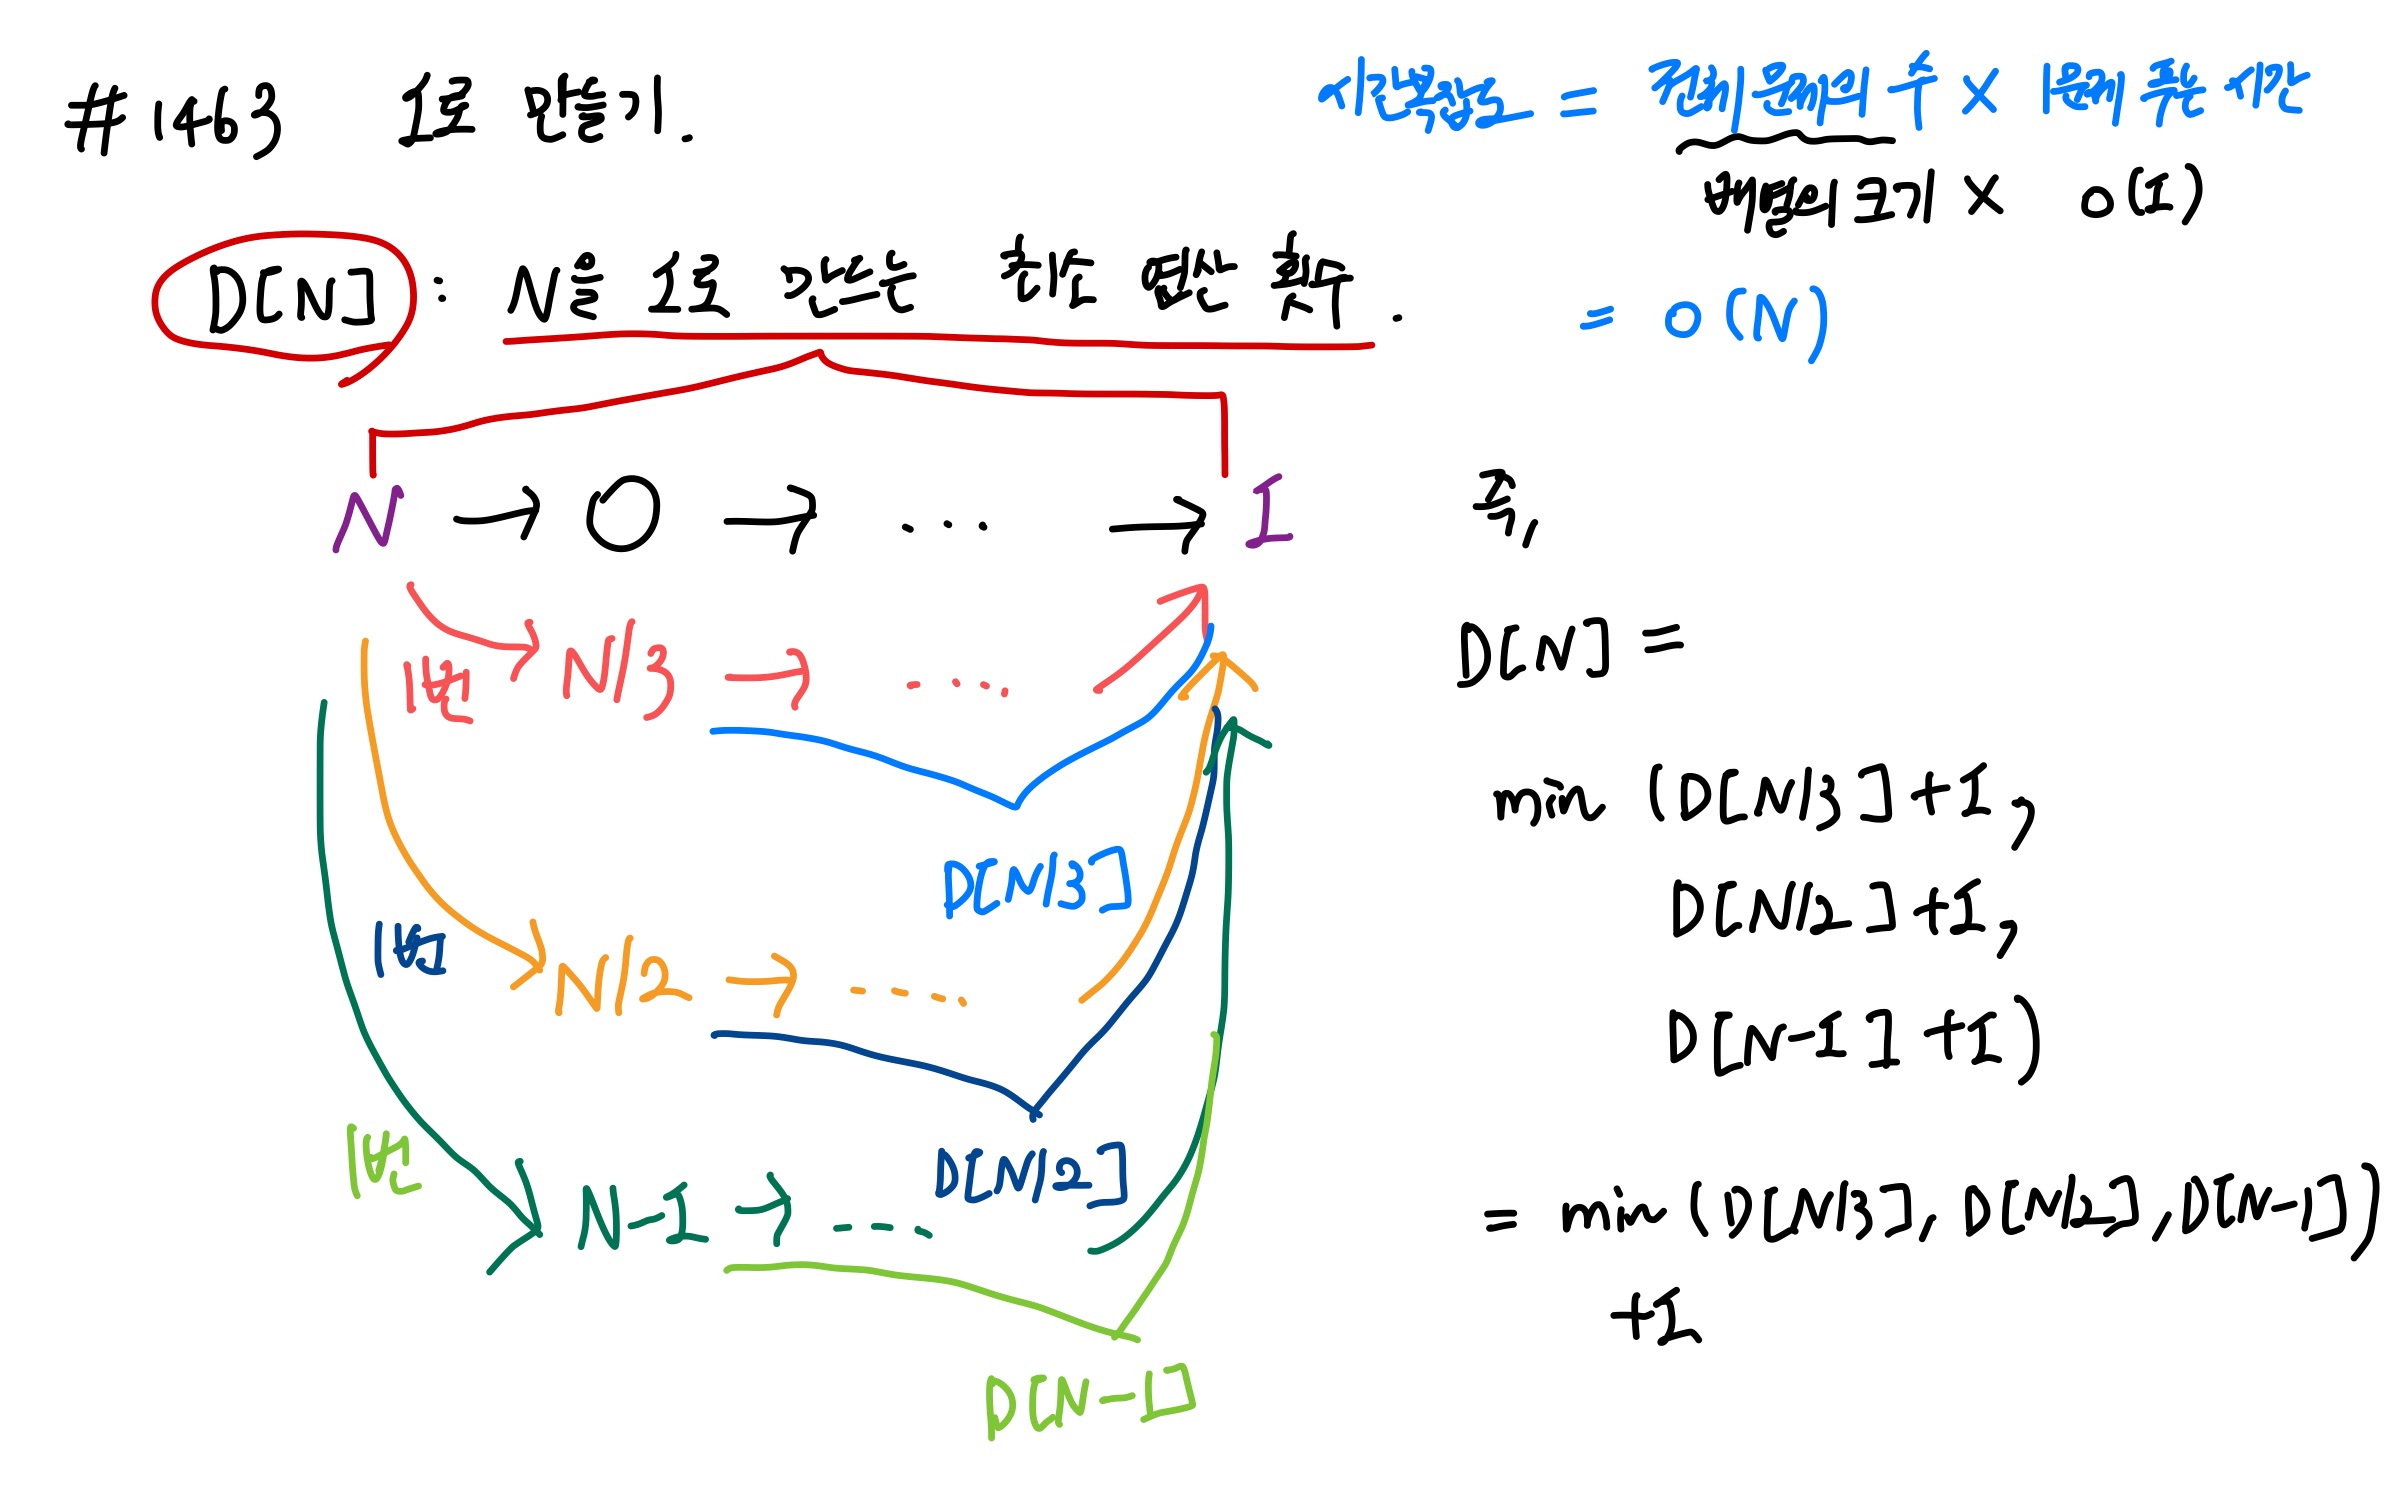 #1463 1로 만들기.
시간복잡도 = 전체 문제의 수 × 1문제 푸는 시간
배열의 크기 × O(1)
= O(N)
D[N] : N을 1로 만드는 최소 연산 횟수.
N → O → ... → 1
즉,
1번
N/3 → ....
D[N] =
min (D[N/3]+1,
D[N/2]+1,
D[N-1]+1)
D[N/3]
1번
N/2 → ....
D[N/2]
1번
N-1 → ....
= min (D[N/3], D[N/2], D[N-1])
+1
D[N-1]